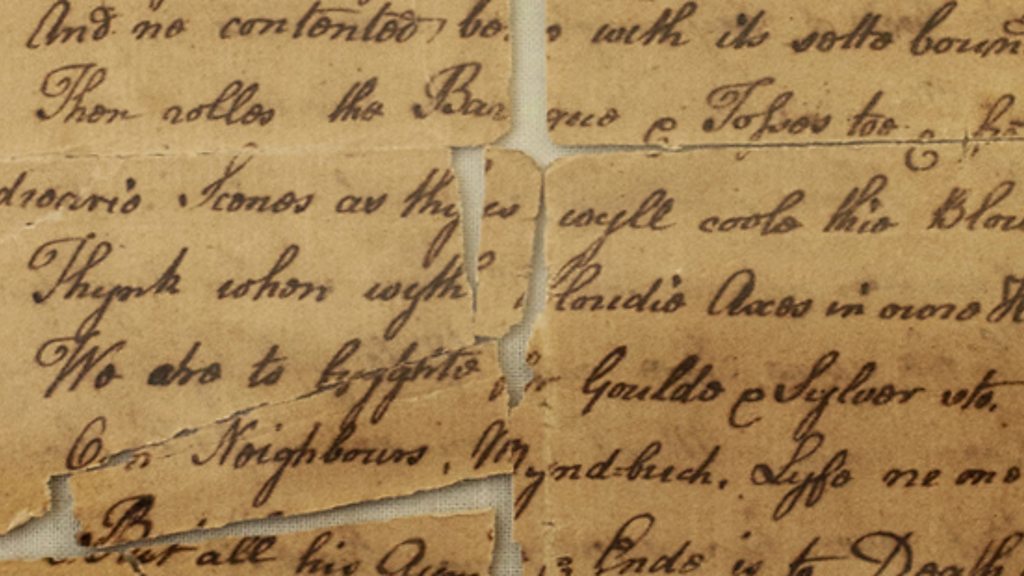 And ne contented be with its sette boun
Then rolles the Bar que & Tosses toe &
drearie Scenes as thys wyll coole thie Blou
Thynk when wyth bloudie Axes in oure H
We are to fyghte for Goulde & Sylver etc.
Own Neighbours, Mynd-such. Lyfe ne mo
But all his Aym is Ende is to Death